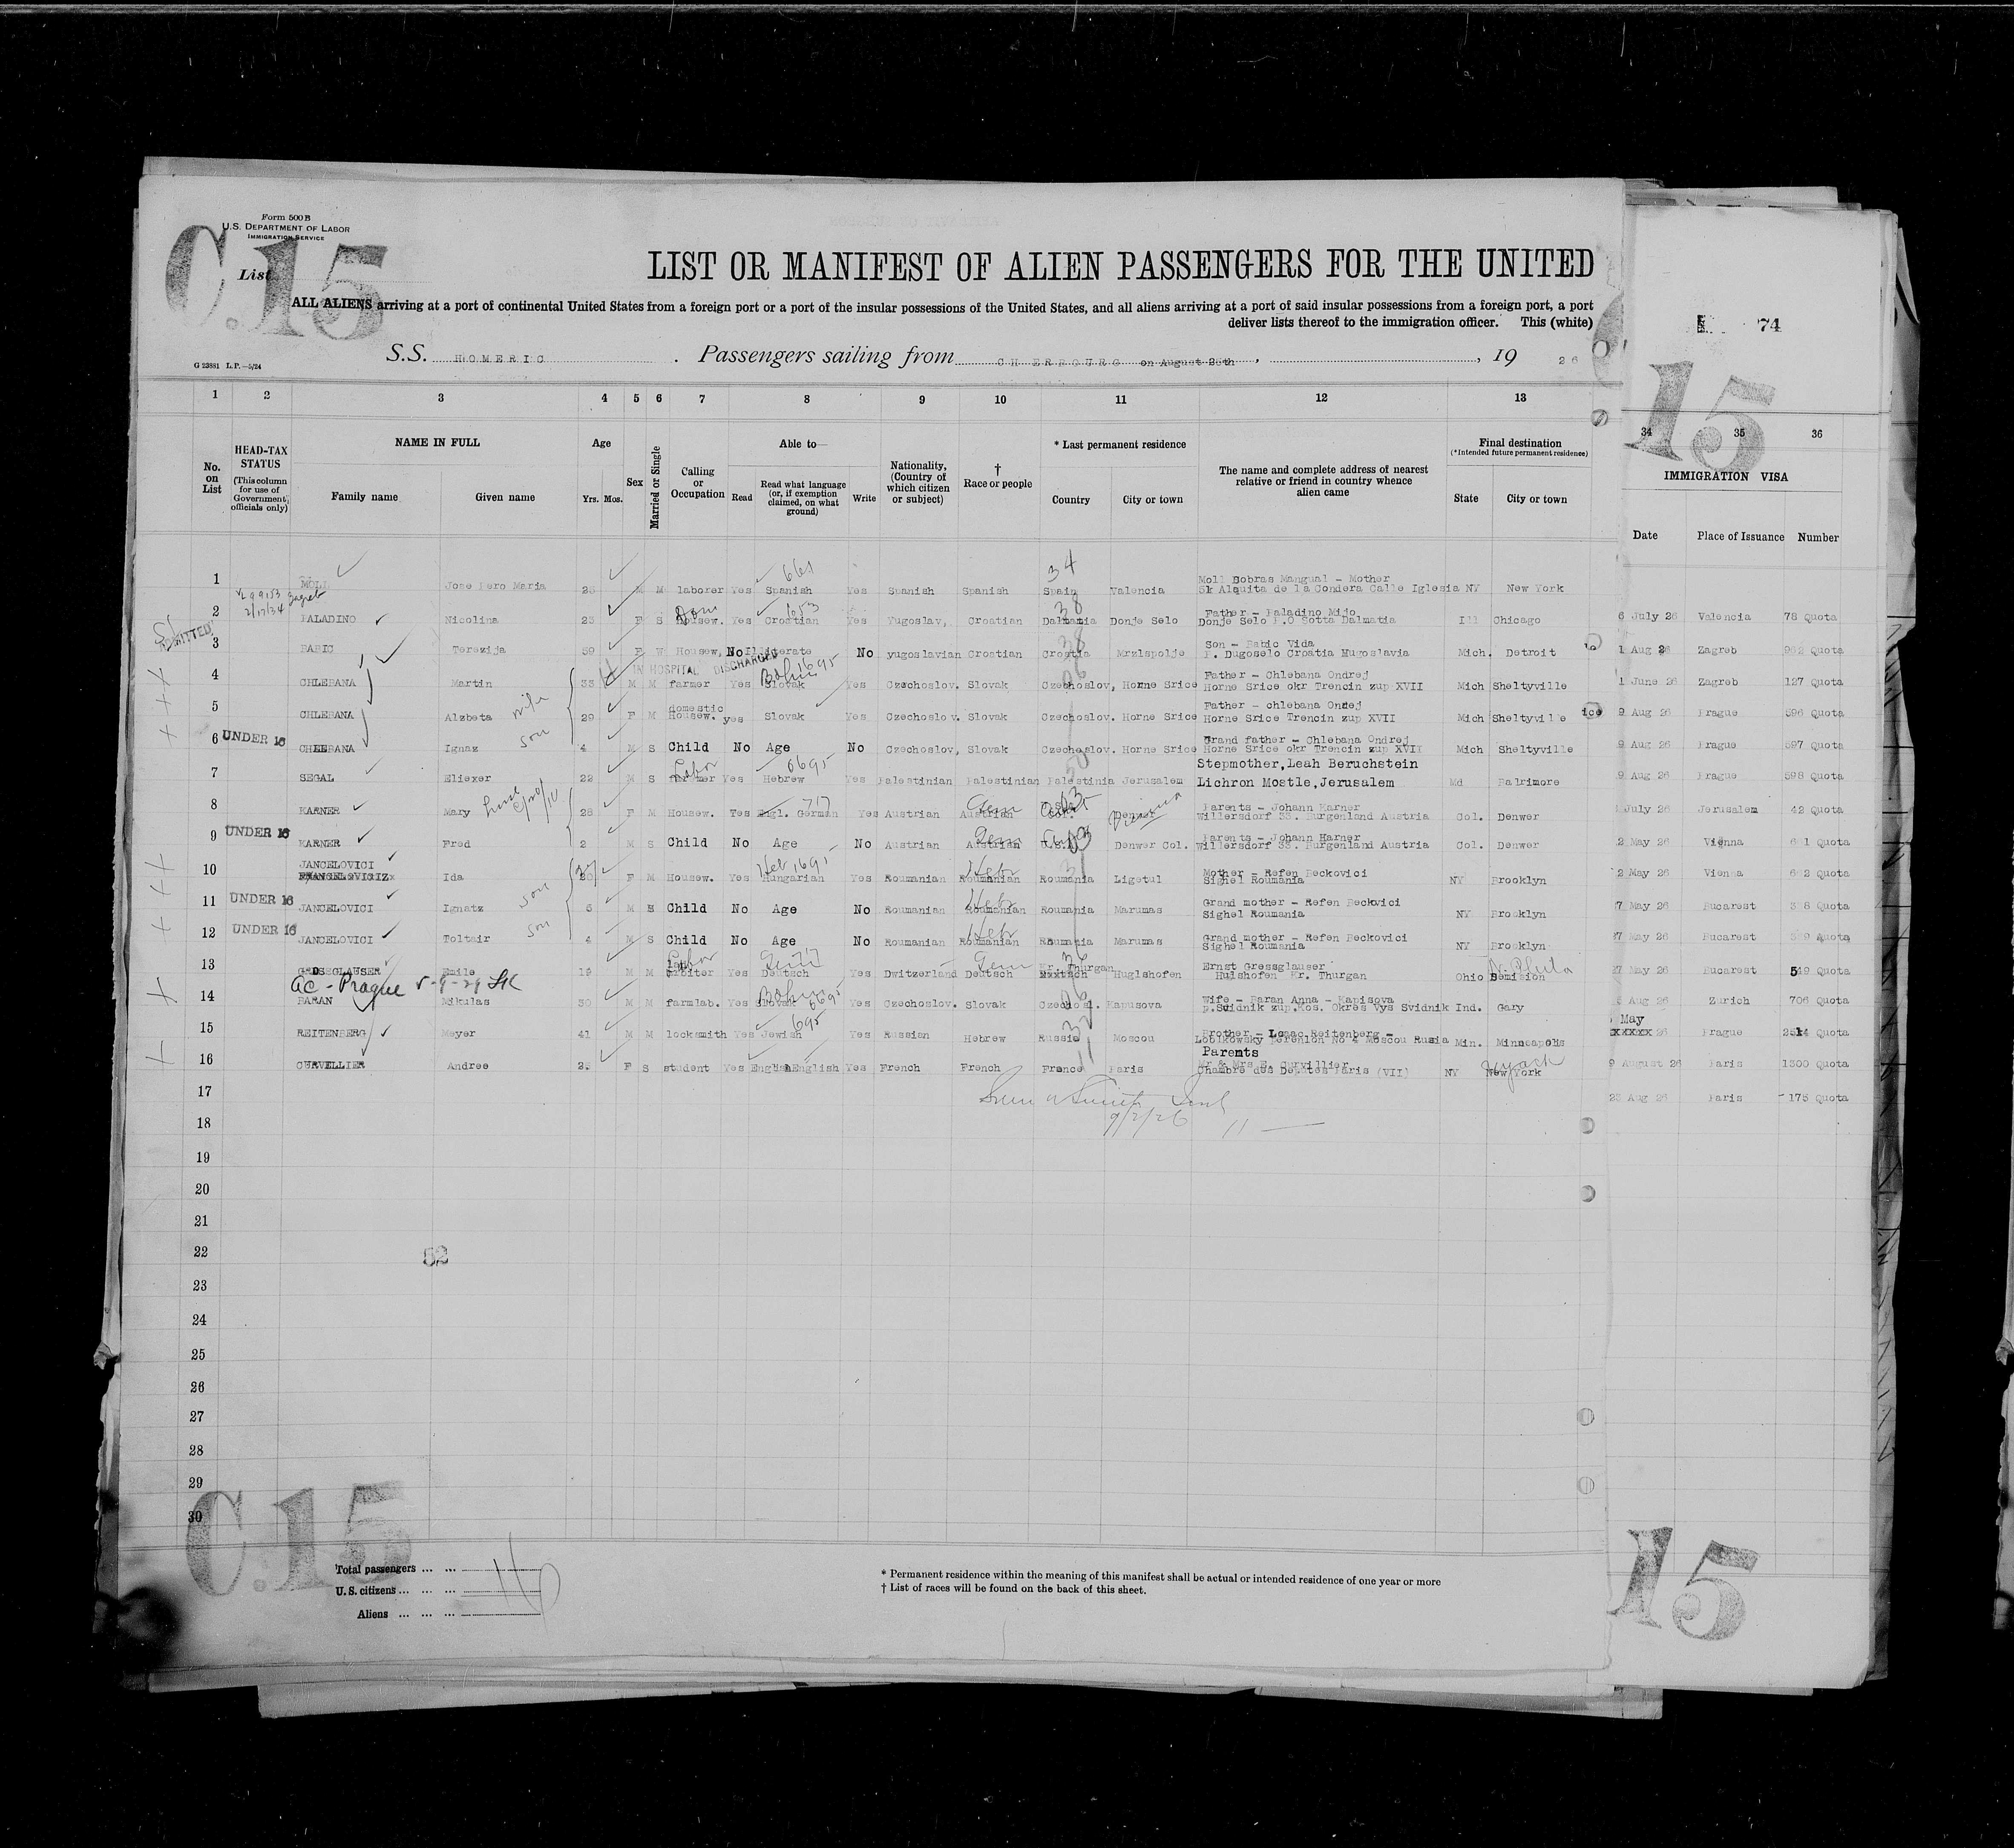 Form 500 B
U.S. DEPARTMENT OF LABOR
IMMIGRATION SERVICE
C.15
List
LIST OR MANIFEST OF ALIEN PASSENGERS FOR THE UNITED
ALL ALIENS arriving at a port of continental United States from a foreign port or a port of the insular possessions of the United States, and all aliens arriving at a port of said insular possessions from a foreign port, a port
deliver lists thereof to the immigration officer. This (white)
S.S. HOMERIC . Passengers sailing from CHERBOURG on August 25th , , 19 26
G 23881 L.P.—5/24
74
15
1 2 3 4 5 6 7 8 9 10 11 12 13 34 35 36
No. on List
HEAD-TAX STATUS (This column for use of Government officials only)
NAME IN FULL Family name Given name
Age Yrs. Mos.
Sex
Married or Single
Calling or Occupation
Able to— Read Read what language (or, if exemption claimed, on what ground) Write
Nationality, (Country of which citizen or subject)
† Race or people
* Last permanent residence Country City or town
The name and complete address of nearest relative or friend in country whence alien came
Final destination (*Intended future permanent residence) State City or town
IMMIGRATION VISA
Date Place of Issuance Number
Moll Bobras Mangual - Mother
1 MOLL Jose Pero Maria M M laborer Yes Spanish Yes Spanish Spanish Spain Valencia Calle Iglesia NY New York
Father - Paladino Mijo
2 PALADINO Nicolina 23 F S Housew. Yes Croatian Yes Yugoslav, Croatian Dalmatia Donje Selo Donje Selo P.O Sotta Dalmatia Ill Chicago
6 July 26 Valencia 78 Quota
ADMITTED
Son - Babic Vida
3 BABIC Terezija 59 F W Housew, No Illiterate No yugoslavian Croatian Croatia Mrzlspolje P. Dugoselo Croatia Hugoslavia Mich. Detroit
1 Aug 26 Zagreb 962 Quota
IN HOSPITAL DISCHARGED
Father - Chlebana Ondrej
4 CHLEBANA Martin 33 M M farmer Yes Slovak Yes Czechoslov. Slovak Czechoslov, Horne Srice Horne Srice okr Trencin zup XVII Mich Sheltyville
1 June 26 Zagreb 127 Quota
domestic Father - chlebana Ondrej
5 CHLEBANA Alzbeta wife 29 F M Housew. yes Slovak Yes Czechoslov. Slovak Czechoslov. Horne Srice Horne Srice Trencin zup XVII Mich Sheltyville
9 Aug 26 Prague 596 Quota
Grand father - Chlebana Ondrej
6 UNDER 16 CHLEBANA Ignaz son 4 M S Child No Age No Czechoslov, Slovak Czechoslov. Horne Srice Horne Srice okr Trencin zup XVII Mich Sheltyville
9 Aug 26 Prague 597 Quota
Stepmother,Leah Beruchstein
7 SEGAL Eliexer 22 M S farmer Yes Hebrew Yes Palestinian Palestinian Palestinia Jerusalem Lichron Mostle,Jerusalem Md Balrimore
9 Aug 26 Prague 598 Quota
Parents - Johann Karner
8 KARNER Mary 28 F M Housew. Yes Engl. German Yes Austrian Austrian Vienna Willersdorf 33. Burgenland Austria Col. Denwer
July 26 Jerusalem 42 Quota
Parents - Johann Harner
9 UNDER 16 KARNER Fred 2 M S Child No Age No Austrian Austrian Denwer Col. Willersdorf 33. Burgenland Austria Col. Denwer
2 May 26 Vienna 661 Quota
JANCELOVICI Mother - Refen Beckovici
10 Ida F M Housew. Yes Hungarian Yes Roumanian Roumanian Roumania Ligetul Sighel Roumania NY Brooklyn
2 May 26 Vienna 662 Quota
Grand mother - Refen Beckovici
11 UNDER 16 JANCELOVICI Ignatz son M S Child No Age No Roumanian Roumanian Roumania Marumas Sighel Roumania NY Brooklyn
27 May 26 Bucarest Quota
Grand mother - Refen Beckovici
12 UNDER 16 JANCELOVICI Toltair son 4 M S Child No Age No Roumanian Roumanian Roumania Marumas Sighel Roumania NY Brooklyn
27 May 26 Bucarest Quota
Ernst Gressglauser
13 Emile 19 M M Yes Deutsch Yes Dwitzerland Deutsch Kr. Thurgan Huglshofen Hulshofen Kr. Thurgan Ohio
27 May 26 Bucarest 549 Quota
AC - Prague
Wife - Baran Anna - Kapisova
14 BARAN Mikulas 30 M M farmlab. Yes Slovak Yes Czechoslov. Slovak Czechosl. Kapusova P.Svidnik zup.Kos. Okres Vys Svidnik Ind. Gary
Aug 26 Zurich 706 Quota
Brother - Isaac Reitenberg -
15 REITENBERG Meyer 41 M M locksmith Yes Jewish Yes Russian Hebrew Russia Moscou No 4 Moscou Rusia Min. Minneapolis
May 26 Prague 2514 Quota
Parents
Mr & Mrs E. Curvillier
16 CURVELLIER Andree F S student Yes English English Yes French French France Paris Chambre des Deputes Paris (VII) NY New York Nyack
9 August 26 Paris 1300 Quota
17
23 Aug 26 Paris 175 Quota
9/2/26
18
19
20
21
22
52
23
24
25
26
27
28
29
30
C.15
15
Total passengers ... ... 16
U. S. citizens ... ... ...
Aliens ... ... ...
* Permanent residence within the meaning of this manifest shall be actual or intended residence of one year or more
† List of races will be found on the back of this sheet.